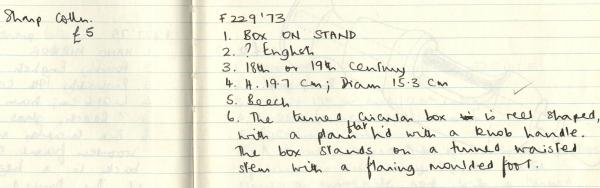 Sharp Colln.
£5
F229'73
1. BOX ON STAND
2. ? English
3. 18th or 19th century
4. H. 19.7 cm; Diam 15.3 cm
5. Beech
6. The turned circular box is reel shaped,
with a plain flat lid with a knob handle.
The box stands on a turned waisted
stem with a flaring moulded foot.